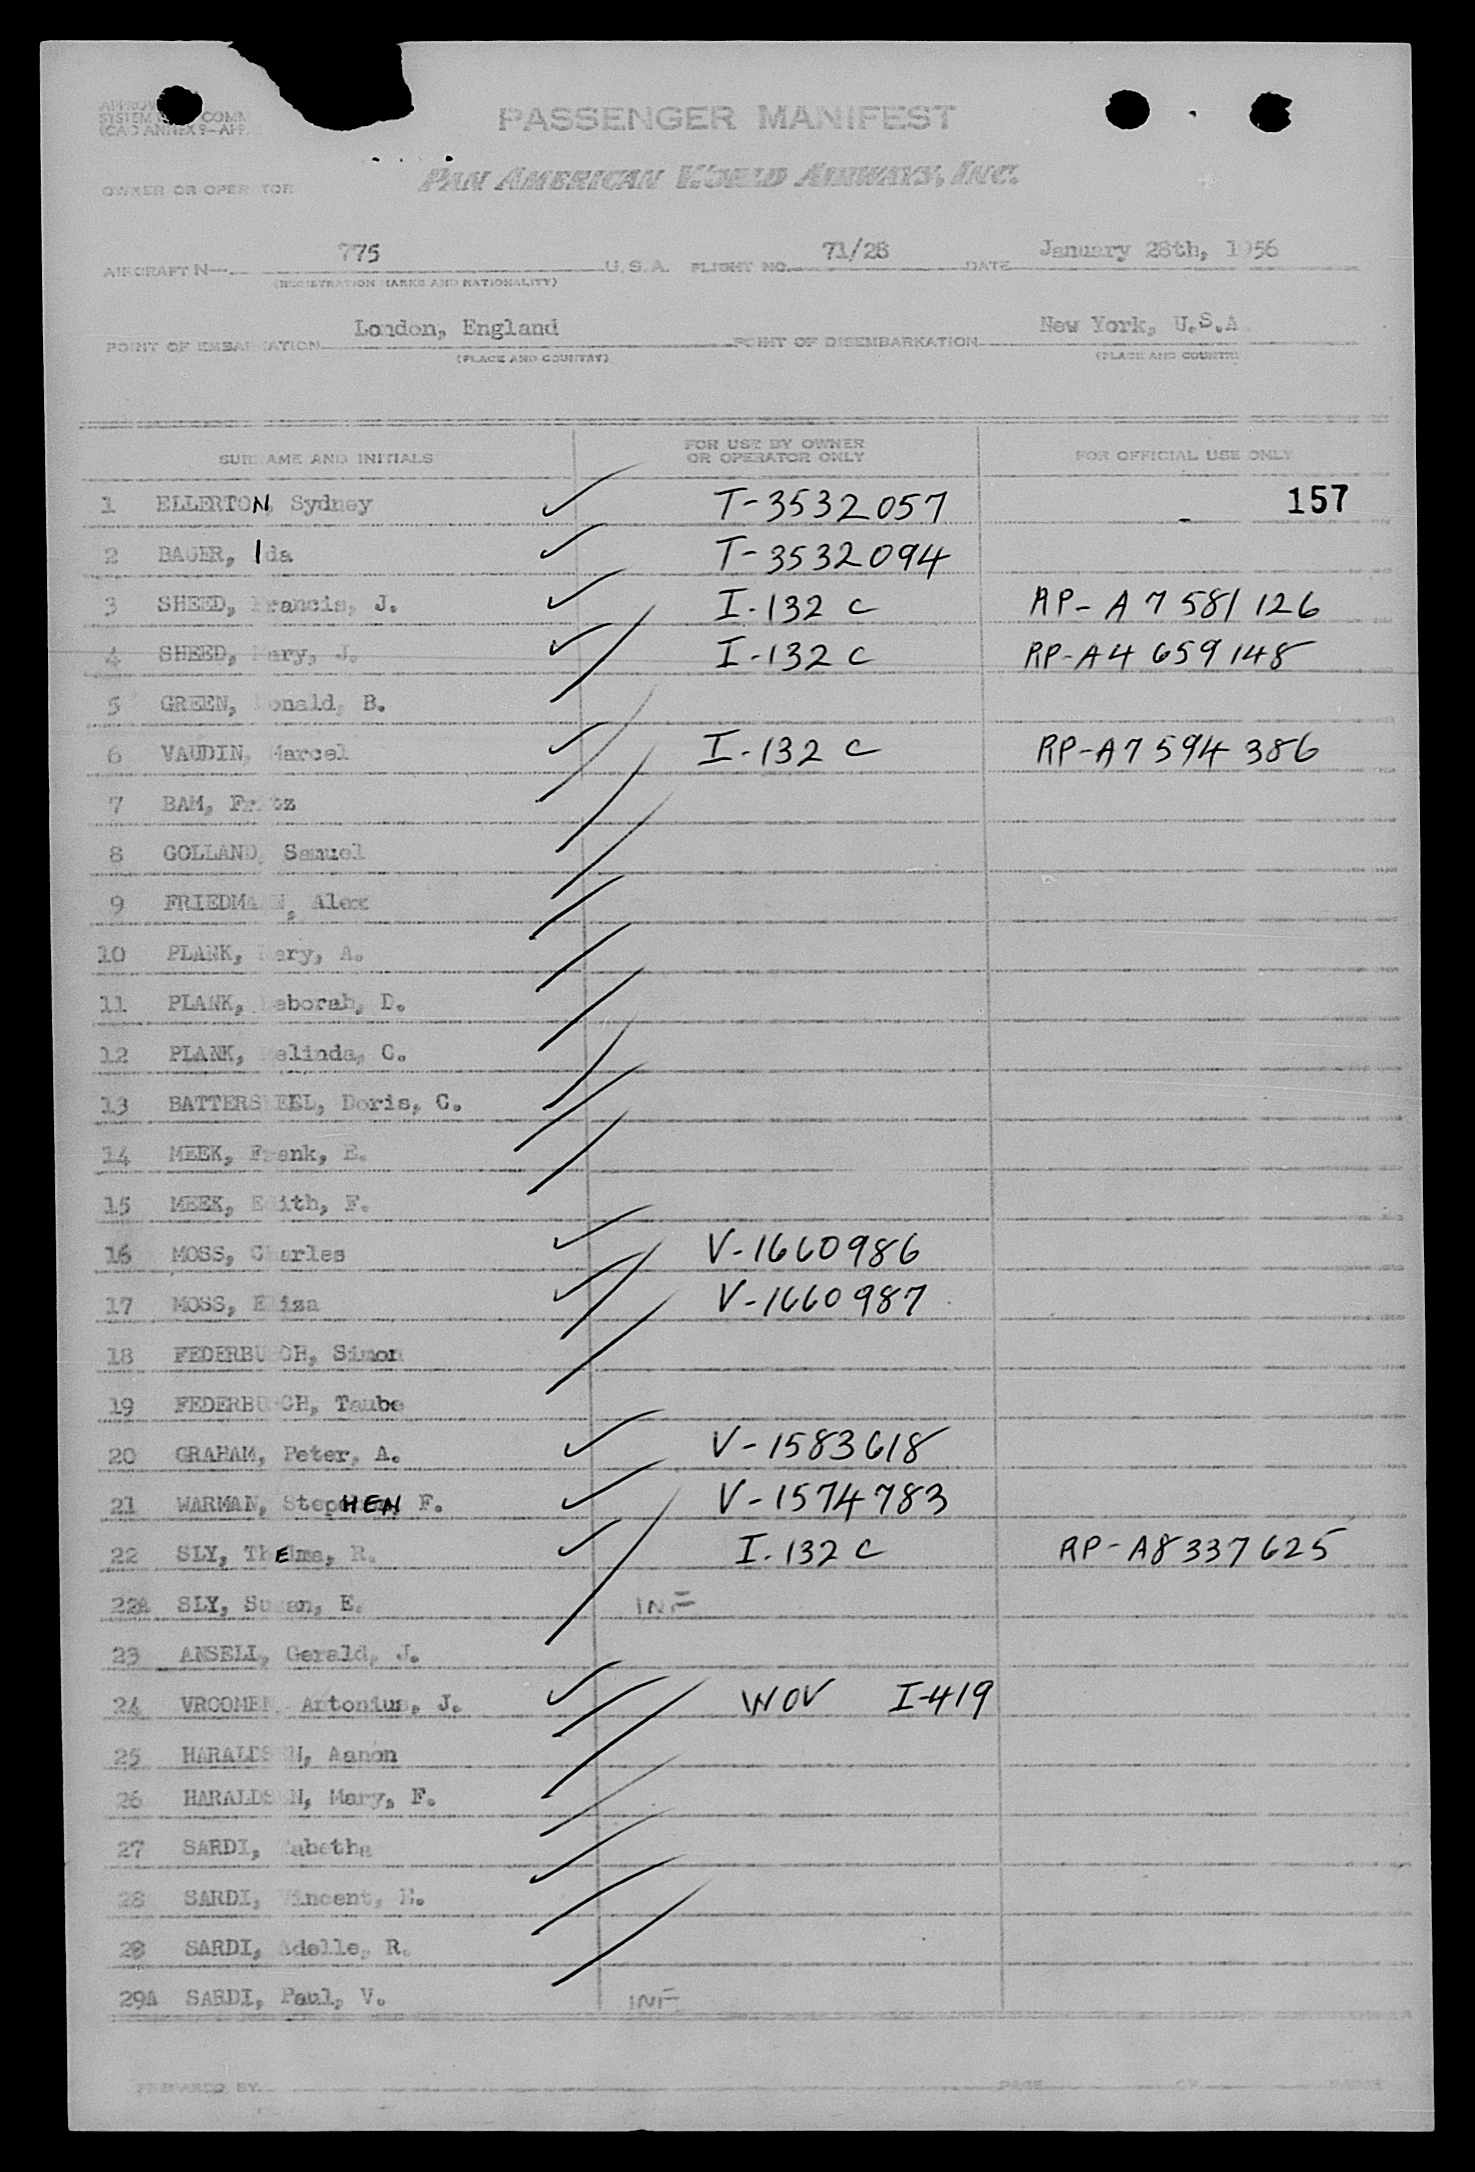 PASSENGER MANIFEST
PAN AMERICAN WORLD AIRWAYS, INC.
OWNER OR OPER TOR
AIRCRAFT N— 775 U.S.A. FLIGHT NO. 71/28 DATE January 28th, 1956
(REGISTRATION MARKS AND NATIONALITY)
POINT OF EMBARKATION London, England POINT OF DISEMBARKATION New York, U.S.A.
(PLACE AND COUNTRY) (PLACE AND COUNTRY)
SURNAME AND INITIALS FOR USE BY OWNER OR OPERATOR ONLY FOR OFFICIAL USE ONLY
1 ELLERTON, Sydney T-3532057 157
2 BAUER, Ida T-3532094
3 SHEED, Francis, J. I-132 C RP-A7 581 126
4 SHEED, Mary, J. I-132 C RP-A4 659 148
5 GREEN, onald, B.
6 VAUDIN, Marcel I-132 C RP-A7 594 386
7 BAM, Fritz
8 GOLLAND, Samuel
9 FRIEDMANN, Alex
10 PLANK, Mary, A.
11 PLANK, Deborah, D.
12 PLANK, Melinda, C.
13 BATTERS EEL, Doris, C.
14 MEEK, Frank, E.
15 MEEK, Edith, F.
16 MOSS, Charles V-1660986
17 MOSS, Eliza V-1660987
18 FEDERBU CH, Simon
19 FEDERBU CH, Taube
20 GRAHAM, Peter, A. V-1583618
21 WARMAN, StepHEN F. V-1574783
22 SLY, ThElma, R. I-132 C RP-A8 337 625
22A SLY, Susan, E. INF
23 ANSELL, Gerald, J.
24 VROOMEN, Antonius, J. WOV I-419
25 HARALDSEN, Aanon
26 HARALDSEN, Mary, F.
27 SARDI, Tabetha
28 SARDI, Vincent, E.
29 SARDI, Adelle, R.
29A SARDI, Paul, V. INF
PREPARED BY PAGE OF